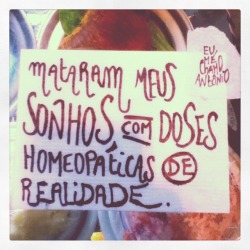 MATARAM MEUS
SONHOS, COM DOSES
HOMEOPÁTICAS DE
REALIDADE.
EU,
ME
CHAMO
ANTÔNIO